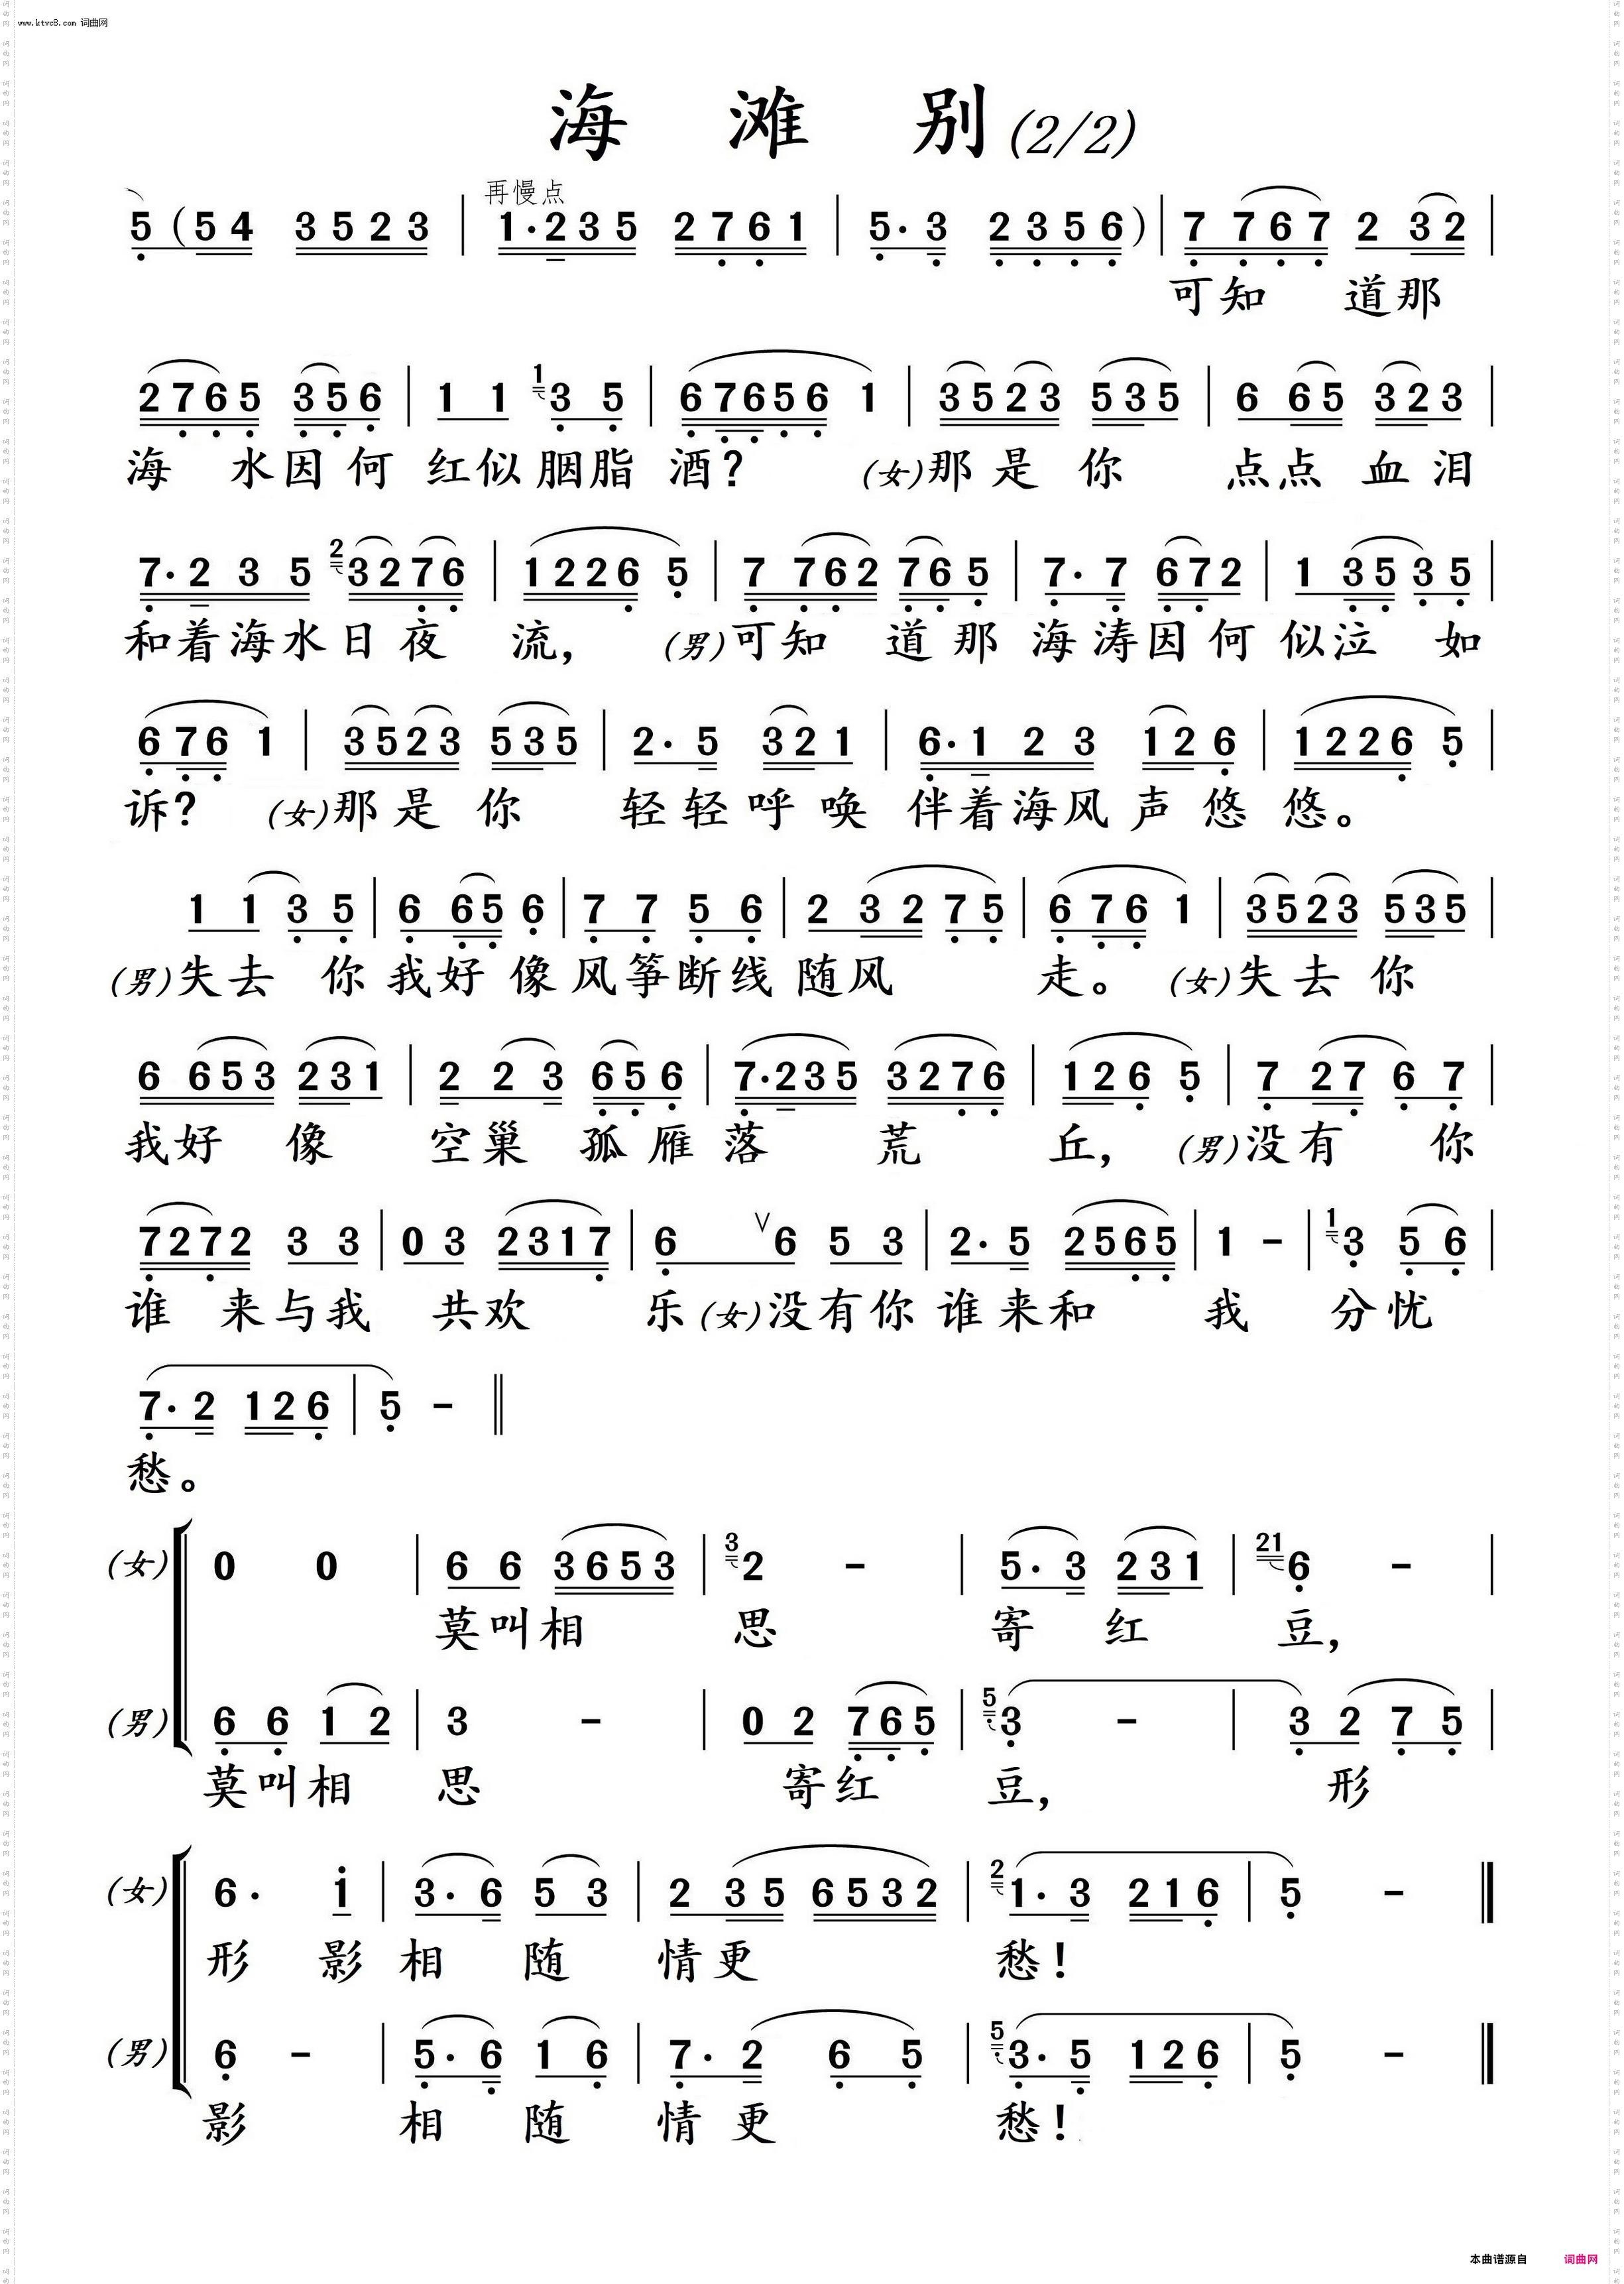 www.ktvc8.com 词曲网
海滩别(2/2)
再慢点
5 (5 4 3 5 2 3 | 1· 2 3 5 2 7 6 1 | 5· 3 2 3 5 6 ) | 7 7 6 7 2 3 2 |
可知 道那
2 7 6 5 3 5 6 | 1 1 1 3 5 | 6 7 6 5 6 1 | 3 5 2 3 5 3 5 | 6 6 5 3 2 3 |
海 水因 何 红似胭脂 酒? (女)那是 你 点点 血泪
7· 2 3 5 2 3 2 7 6 | 1 2 2 6 5 | 7 7 6 2 7 6 5 | 7· 7 6 7 2 | 1 3 5 3 5 |
和着海水日夜 流, (男)可知 道 那 海涛因何 似泣 如
6 7 6 1 | 3 5 2 3 5 3 5 | 2· 5 3 2 1 | 6· 1 2 3 1 2 6 | 1 2 2 6 5 |
诉? (女)那是 你 轻轻呼唤 伴着海风声悠 悠。
1 1 3 5 | 6 6 5 6 | 7 7 5 6 | 2 3 2 7 5 | 6 7 6 1 | 3 5 2 3 5 3 5 |
(男)失去 你 我好 像 风筝断线 随风 走。 (女)失去 你
6 6 5 3 2 3 1 | 2 2 3 6 5 6 | 7· 2 3 5 3 2 7 6 | 1 2 6 5 | 7 2 7 6 7 |
我好 像 空巢 孤雁 落 荒 丘, (男)没有 你
7 2 7 2 3 3 | 0 3 2 3 1 7 | 6 ∨ 6 5 3 | 2· 5 2 5 6 5 | 1 - | 1 3 5 6 |
谁 来与我 共欢 乐(女)没有你 谁来和 我 分忧
7· 2 1 2 6 | 5 - ‖
愁。
(女) 0 0 | 6 6 3 6 5 3 | 3 2 - | 5· 3 2 3 1 | 21 6 - |
莫叫相 思 寄 红 豆,
(男) 6 6 1 2 | 3 - | 0 2 7 6 5 | 5 3 - | 3 2 7 5 |
莫叫相 思 寄红 豆, 形
(女) 6· 1 | 3· 6 5 3 | 2 3 5 6 5 3 2 | 2 1· 3 2 1 6 | 5 - ‖
形 影 相 随 情更 愁!
(男) 6 - | 5· 6 1 6 | 7· 2 6 5 | 5 3· 5 1 2 6 | 5 - ‖
影 相 随 情 更 愁!
本曲谱源自 词曲网